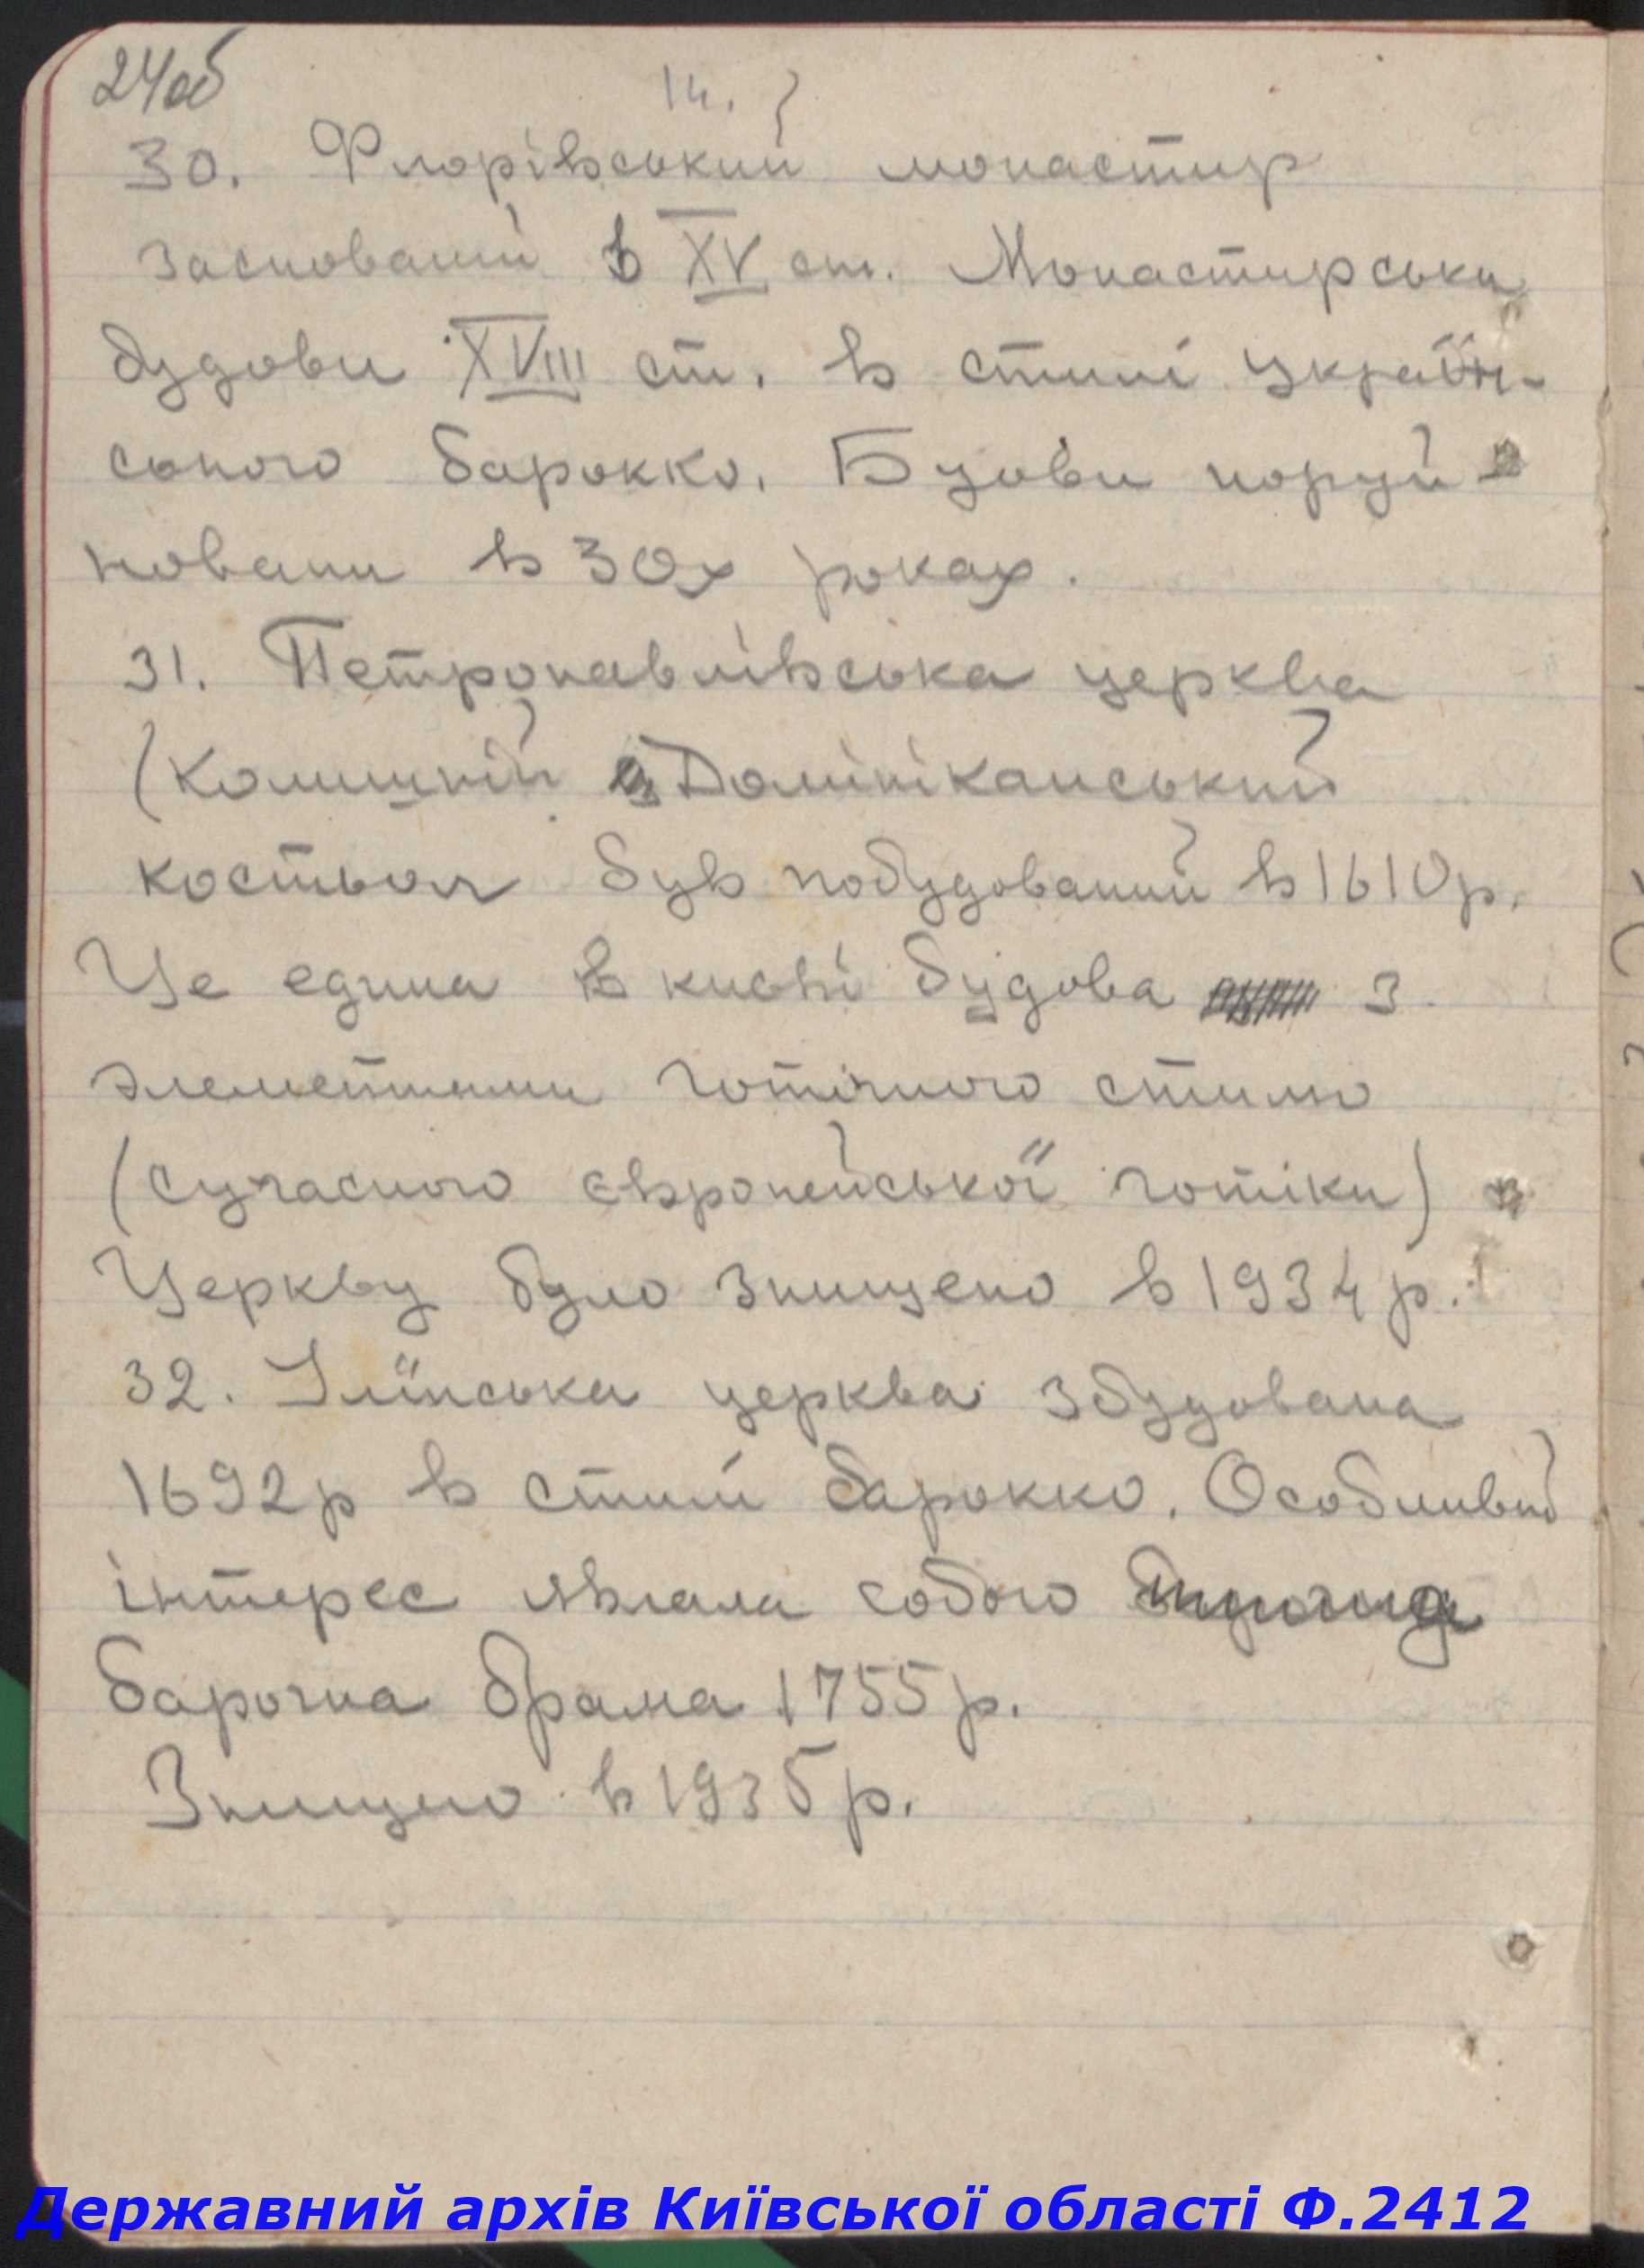 24об
14.
30. Флорівський монастир
заснований в XV ст. Монастирськи
будови XVIII ст. в стилі україн-
ського барокко. Буови поруй
новани в 30х роках.
31. Петропавлівська церква
(Колишній Домініканський
костьол був побудований в 1610р.
Це едина в києві будова з
элементами готічного стилю
(сучасного європейської готіки)
Церкву було знищено в 1934 р.
32. Іллїнська церква збудована
1692р в стилі барокко. Особливий
інтерес являла собою
барочна брама 1755р.
Знищено в 1935р.
Державний архів Київської області Ф.2412